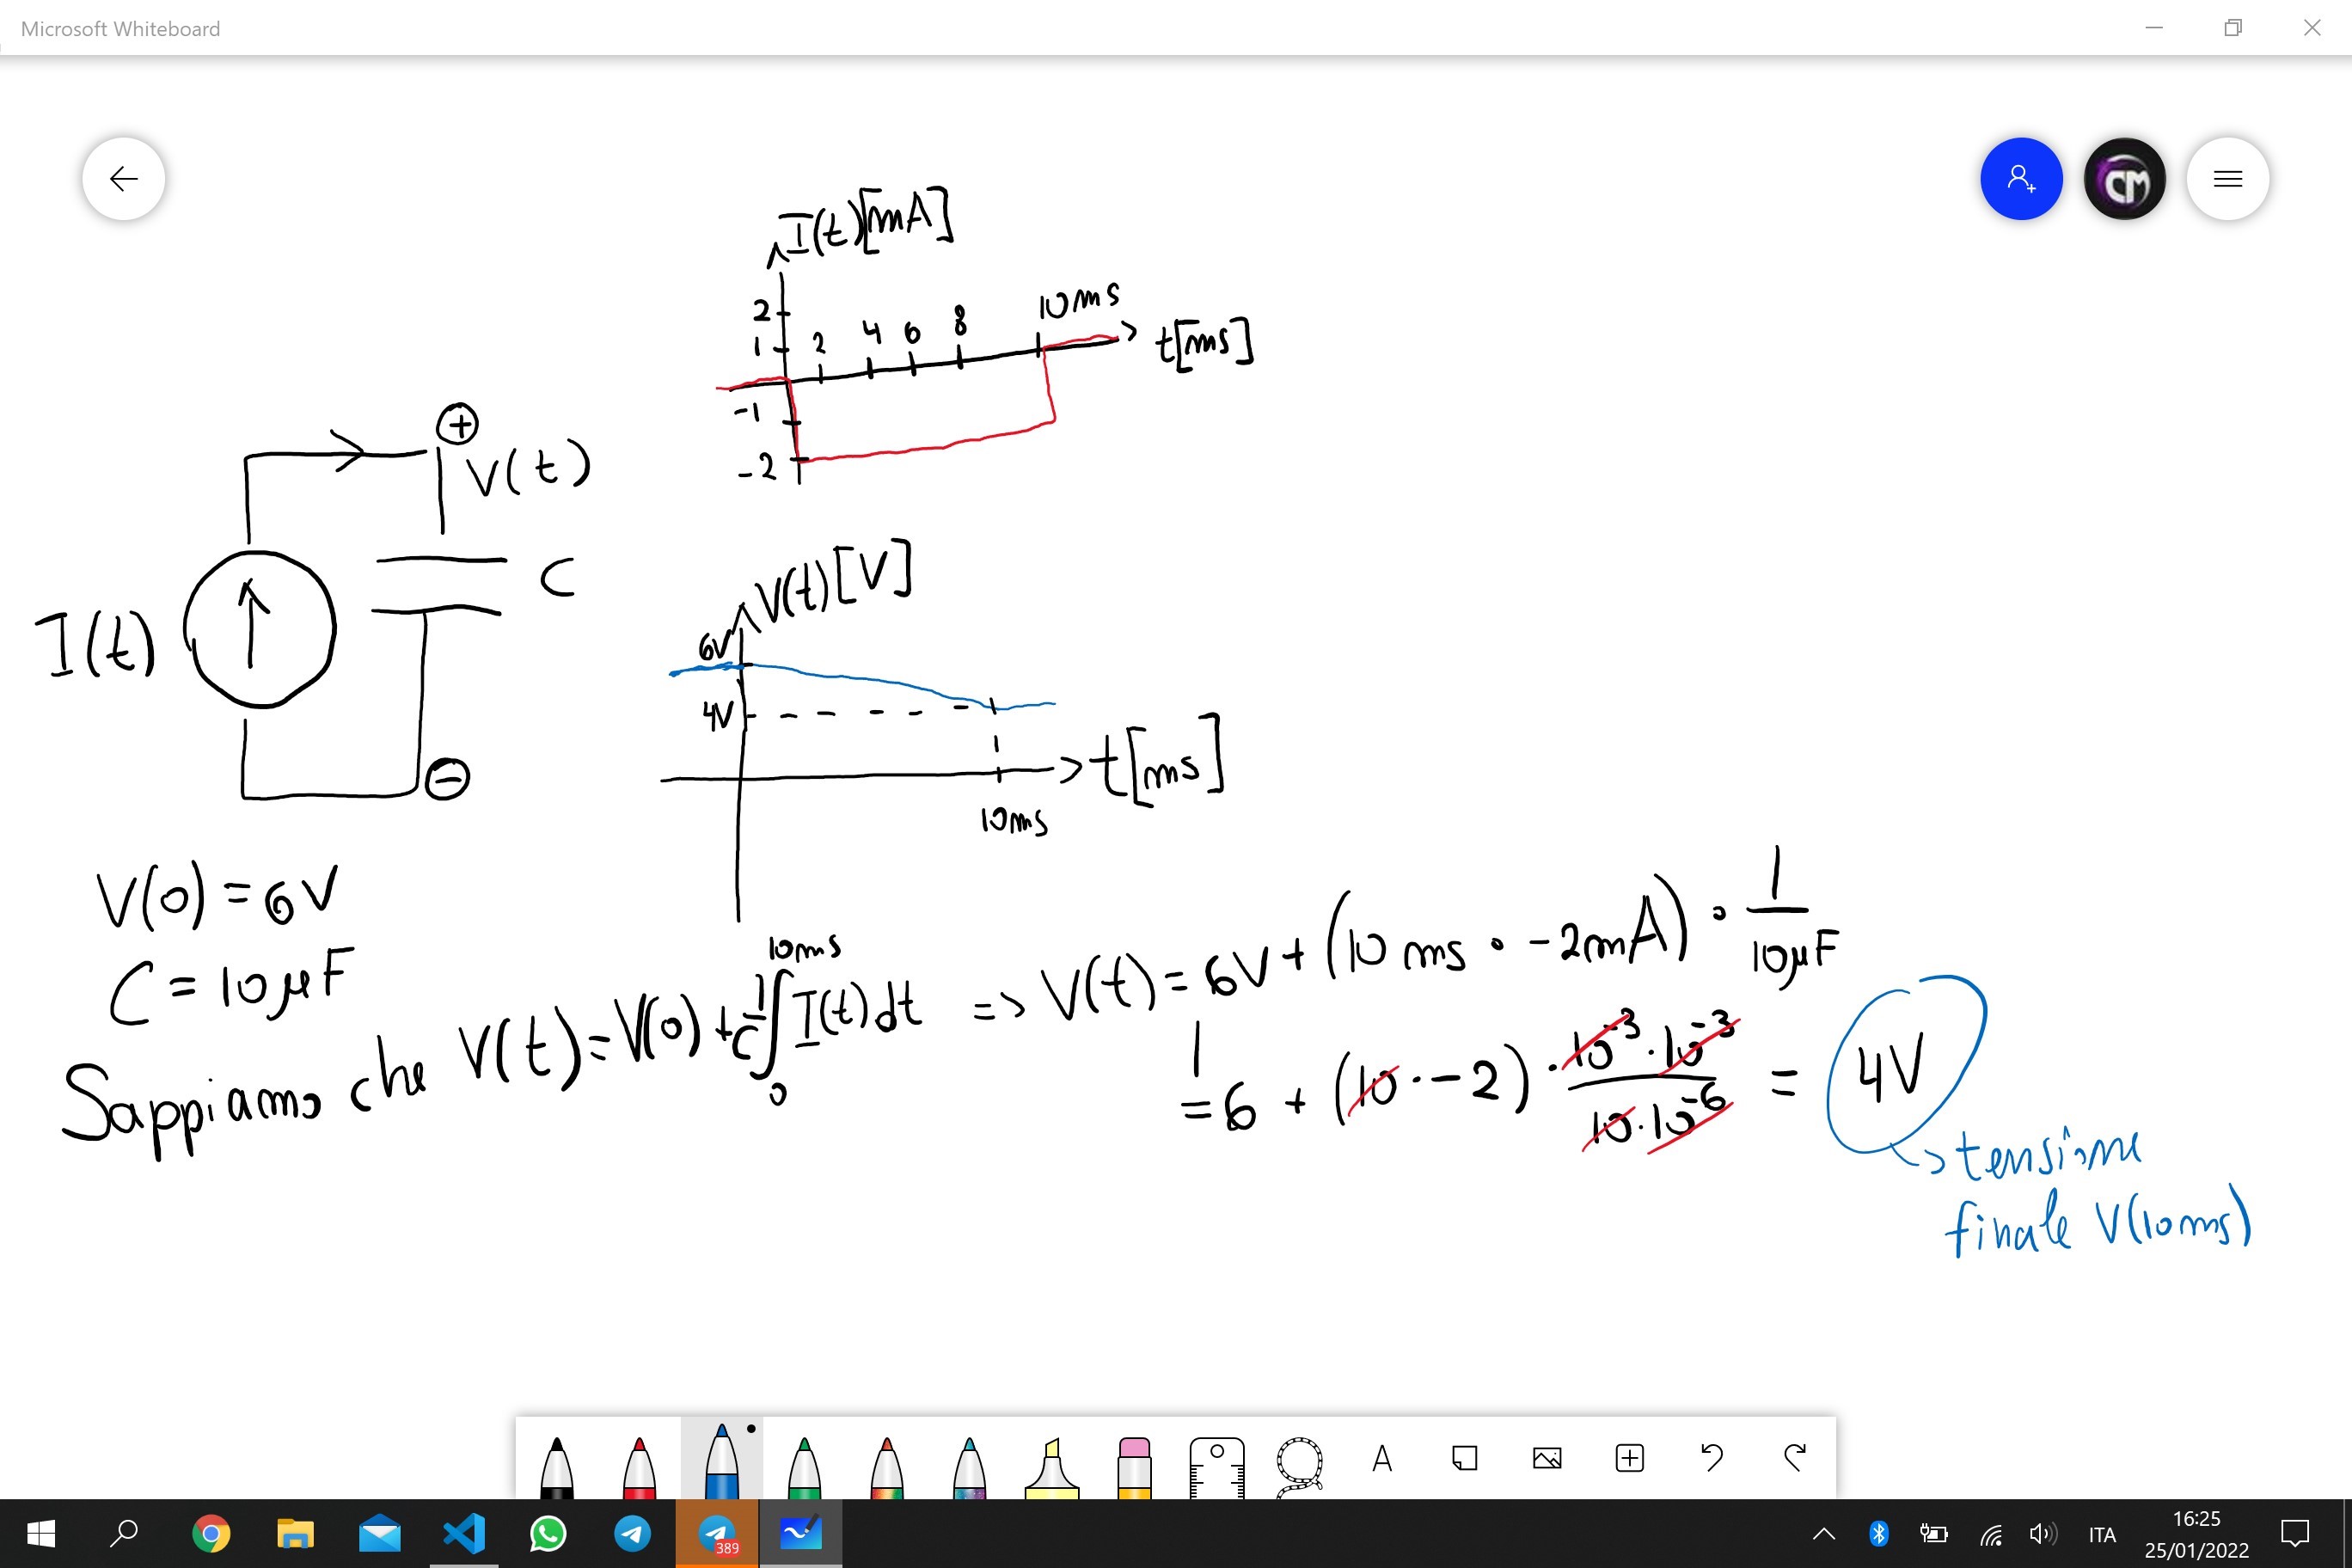 Microsoft Whiteboard
CM
I(t)[mA]
2
1
2
4
6
8
10ms
t[ms]
-1
-2
+
V(t)
C
I(t)
-
V(t)[V]
6V
4V
t[ms]
10ms
V(0)=6V
C=10μF
Sappiamo che V(t)=V(0)+1/C ∫₀^10ms I(t)dt => V(t)=6V+(10ms·-2mA)·1/10μF
=6+(10·-2)·10⁻³·10⁻³/10·10⁻⁶ = 4V
→ tensione
finale V(10ms)
A
389
ITA
16:25
25/01/2022